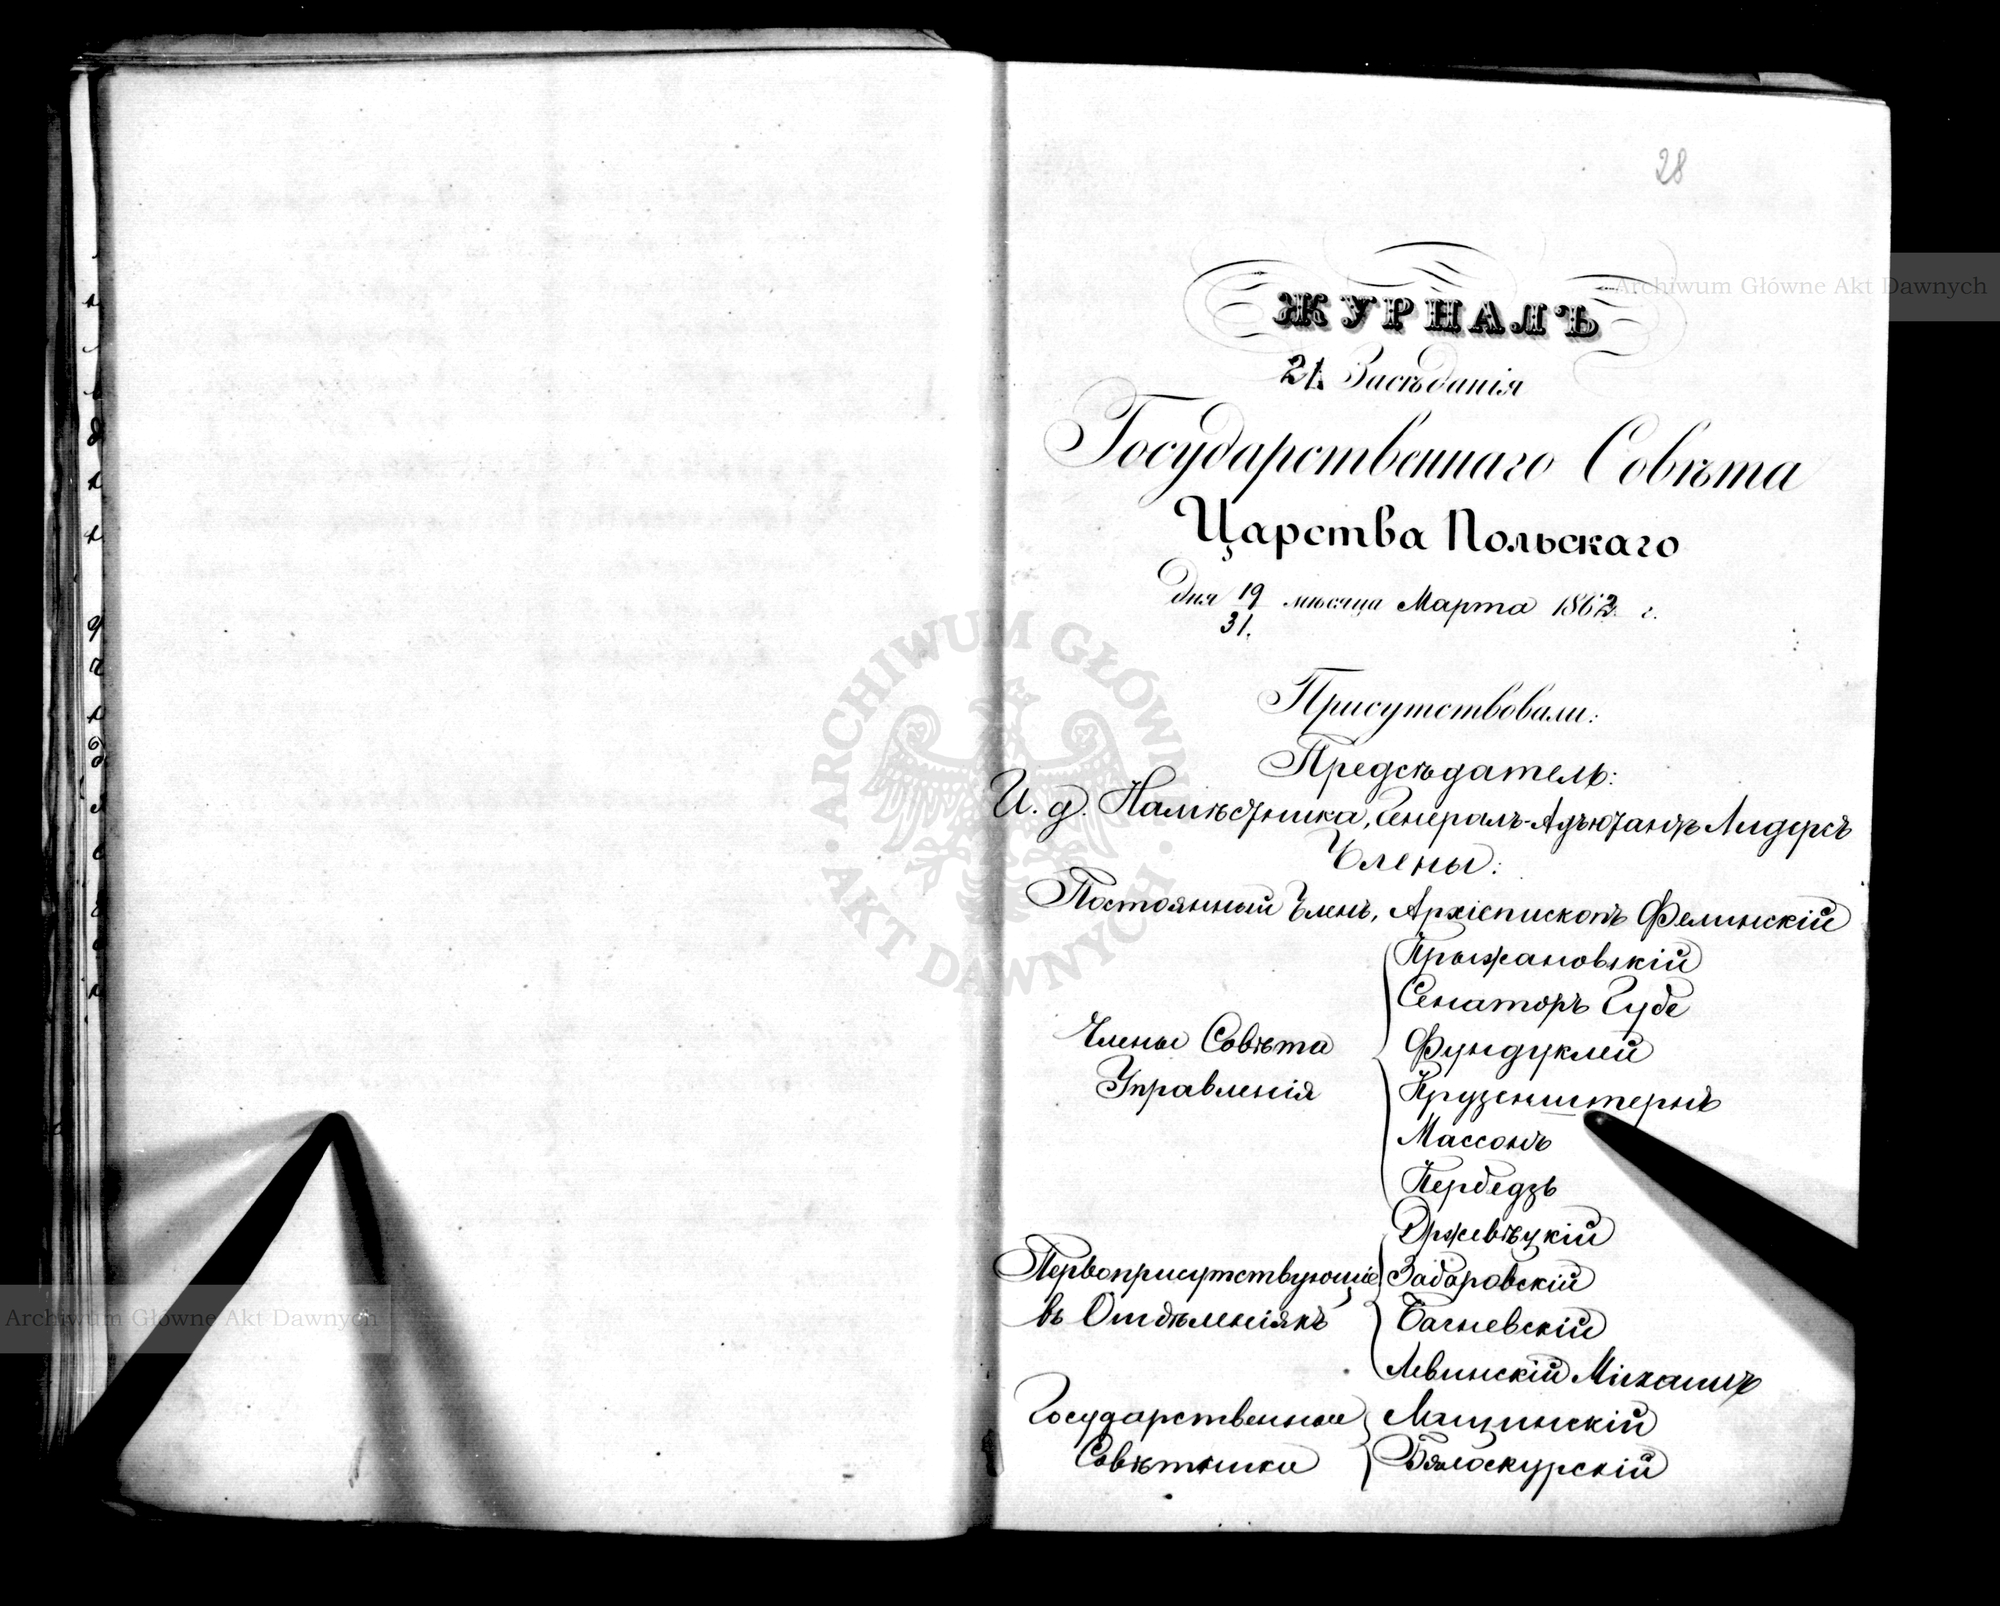 28
ЖУРНАЛЪ
21 Засѣданія
Государственнаго Совѣта
Царства Польскаго
дня 19/31. мѣсяца Марта 1862 г.
Присутствовали:
Предсѣдатель:
И. д. Намѣстника, Генералъ-Адъютантъ Лидерсъ
Члены:
Постоянный Членъ, Архіепископъ Фелинскій
Члены Совѣта
Управленія
Крыжановскій
Сенаторъ Губе
Фундуклей
Крузенштернъ
Массонъ
Кербедзъ
Первоприсутствующіе
въ Отдѣленіяхъ
Држевѣцкій
Заборовскій
Багневскій
Левинскій Михаилъ
Государственные
Совѣтники
Мящинскій
Бялоскурскій
Archiwum Główne Akt Dawnych
Archiwum Główne Akt Dawnych
ARCHIWUM GŁÓWNE
AKT DAWNYCH